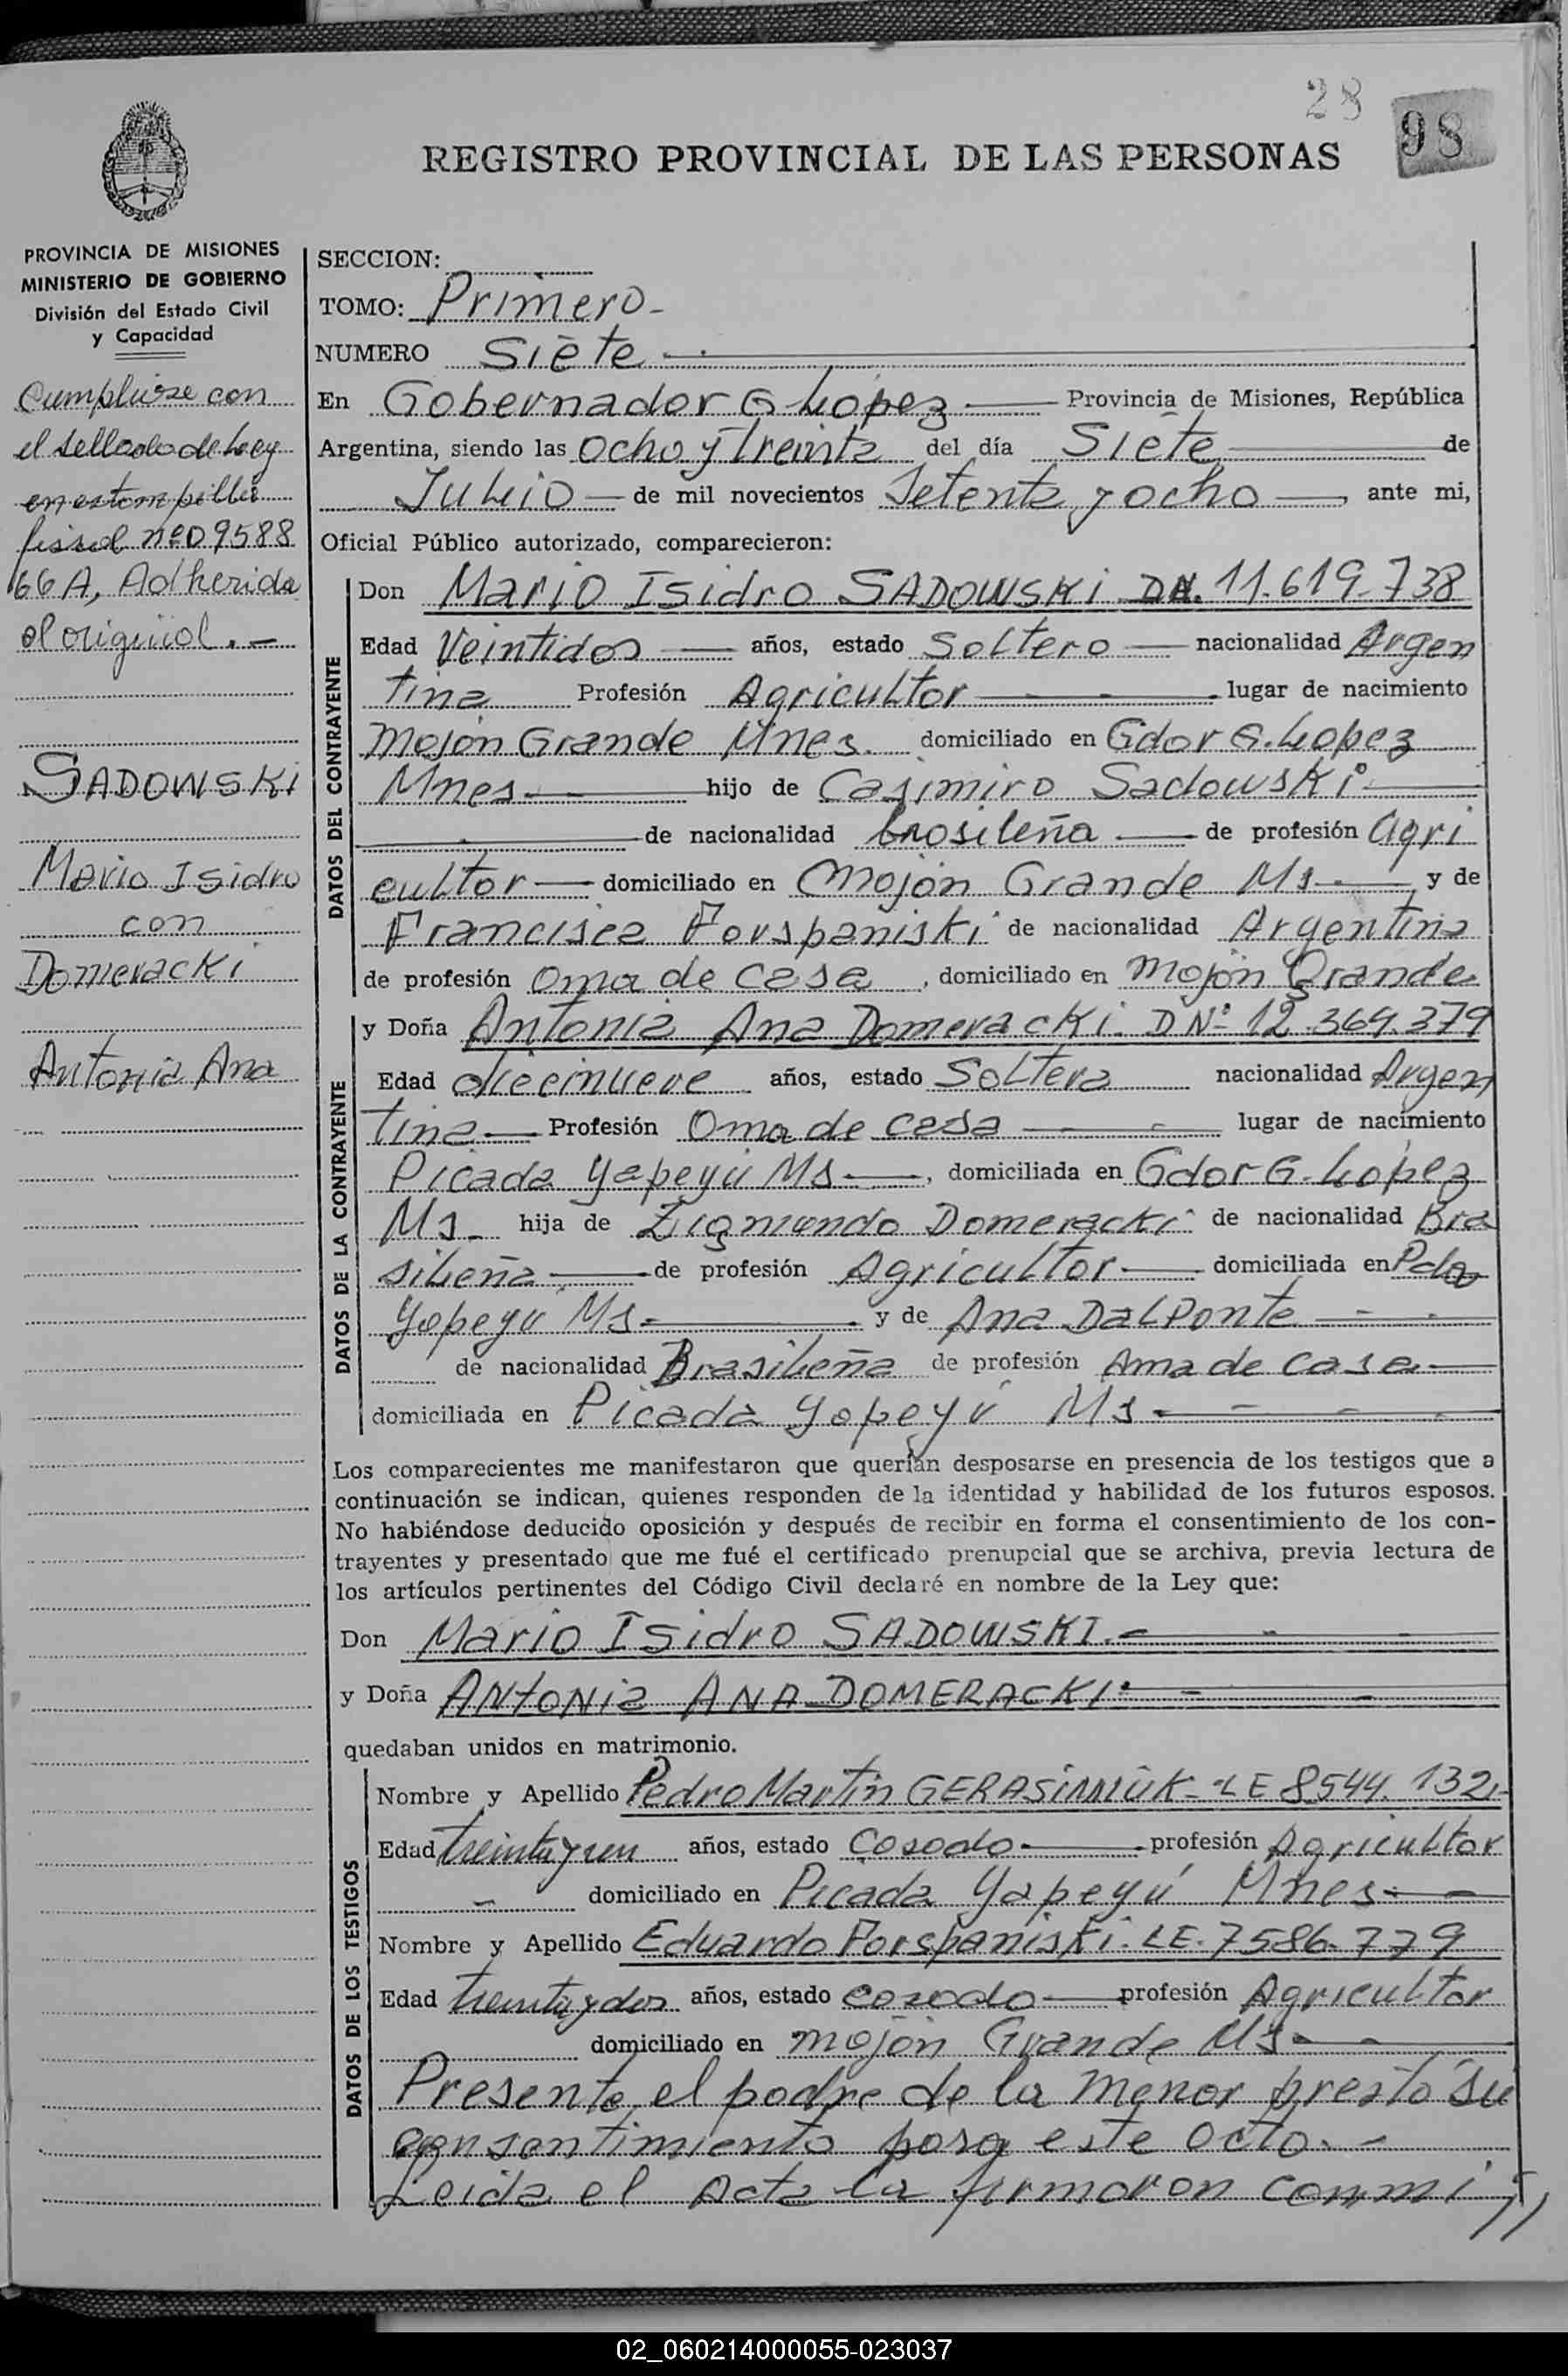 28
98
REGISTRO PROVINCIAL DE LAS PERSONAS
PROVINCIA DE MISIONES
MINISTERIO DE GOBIERNO
División del Estado Civil
y Capacidad
Cumplióse con
el sellado de Ley
en estampilla
fiscal nº 09588
66 A, Adherida
al original.-
SADOWSKi
Mario Isidro
con
Domeracki
Antonia Ana
SECCION:
TOMO: Primero-
NUMERO Siete
En Gobernador G López Provincia de Misiones, República
Argentina, siendo las Ocho y treinta del día Siete de
Julio de mil novecientos Setenta y ocho, ante mi,
Oficial Público autorizado, comparecieron:
DATOS DEL CONTRAYENTE
Don Mario Isidro SADOWSKi DN. 11.619.738
Edad Veintidos años, estado Soltero nacionalidad Argen
tina Profesión Agricultor lugar de nacimiento
Mojón Grande Mnes. domiciliado en Gdor G. Lopez
Mnes hijo de Casimiro Sadowski
de nacionalidad brasileña de profesión agri
cultor domiciliado en Mojón Grande Ms y de
Francisca Forspaniski de nacionalidad Argentina
de profesión Oma de casa, domiciliado en Mojón Grande
DATOS DE LA CONTRAYENTE
y Doña Antonia Ana Domeracki. DNº 12.369.379
Edad diecinueve años, estado Soltera nacionalidad Argen
tina Profesión Oma de casa lugar de nacimiento
Picada Yapeyú Ms, domiciliada en Gdor G. López
Ms. hija de Zigmundo Domeracki de nacionalidad Bra
sileña de profesión Agricultor domiciliada en Pda
Yapeyú Ms y de Ana DalPonte
de nacionalidad Brasileña de profesión Ama de casa
domiciliada en Picada Yapeyú Ms
Los comparecientes me manifestaron que querían desposarse en presencia de los testigos que a
continuación se indican, quienes responden de la identidad y habilidad de los futuros esposos.
No habiéndose deducido oposición y después de recibir en forma el consentimiento de los con-
trayentes y presentado que me fué el certificado prenupcial que se archiva, previa lectura de
los artículos pertinentes del Código Civil declaré en nombre de la Ley que:
Don Mario Isidro SADOWSKI.-
y Doña ANTONIA ANA DOMERACKI
quedaban unidos en matrimonio.
DATOS DE LOS TESTIGOS
Nombre y Apellido Pedro Martín GERASIMIUK - LE 8.544.132
Edad treinta y un años, estado Casado profesión Agricultor
domiciliado en Picada Yapeyú Mnes
Nombre y Apellido Eduardo Forspaniski. LE. 7586.779
Edad treinta y dos años, estado casado profesión Agricultor
domiciliado en Mojón Grande Ms
Presente el padre de la menor prestó su
consentimiento para este acto.-
Leida el Acta la firmaron conmi //
02_060214000055-023037